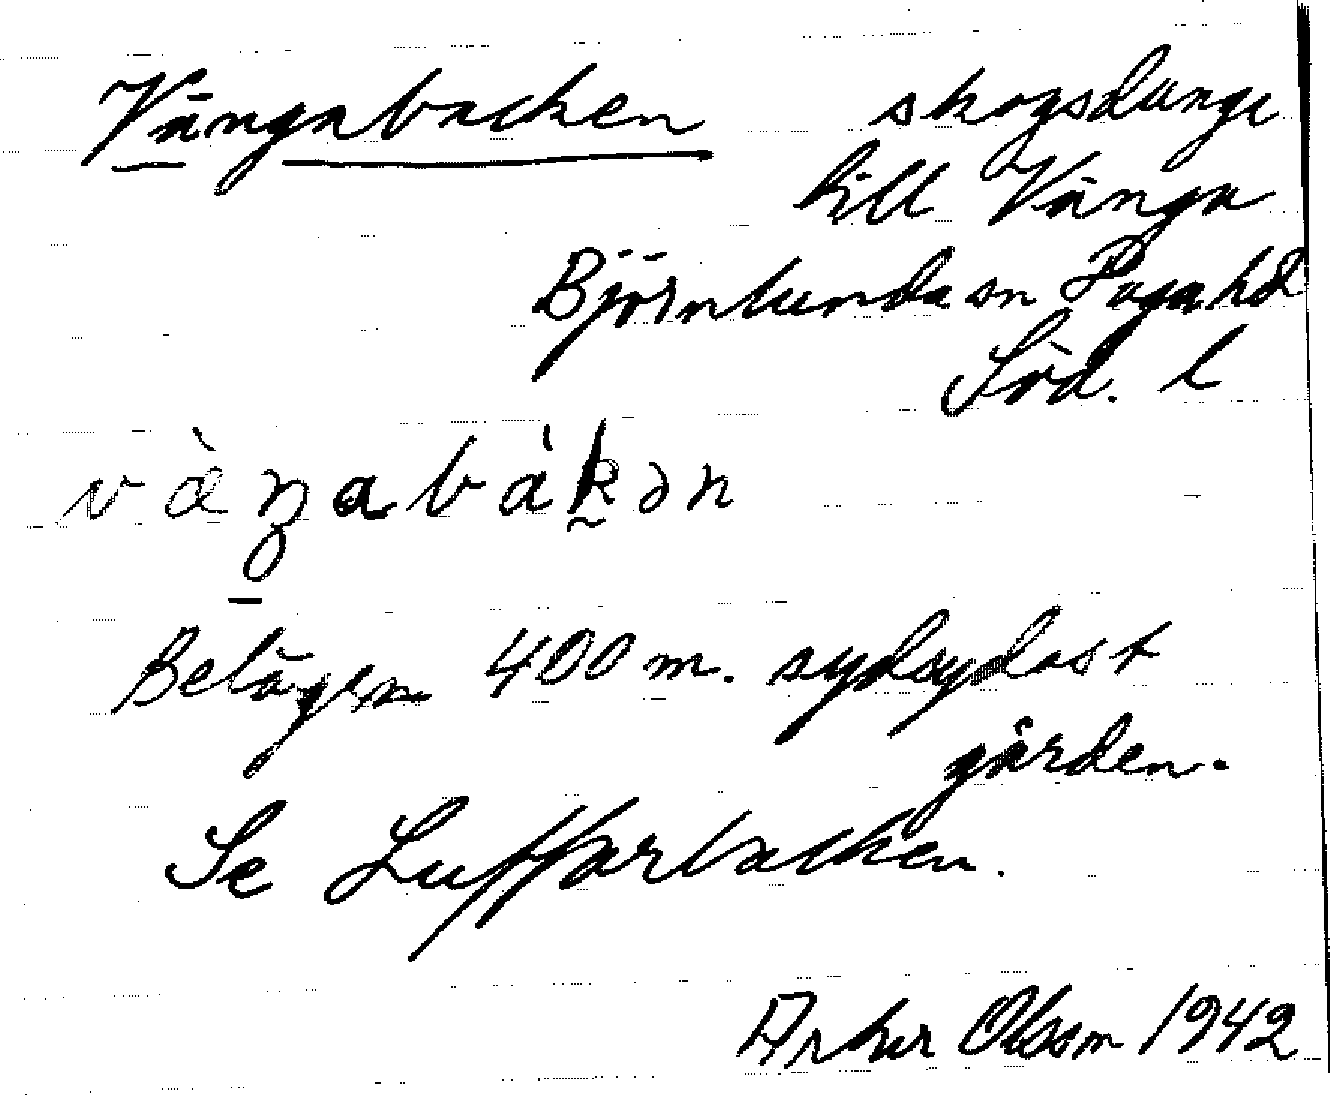 Vängabacken skogsdunge
till Vänga
Björnlunda sn Daga hd
Söd. l
vä̀ŋabàkən
Belägen 400 m. sydsydost
gården.
Se Luffarbacken.
Artur Olsson 1942